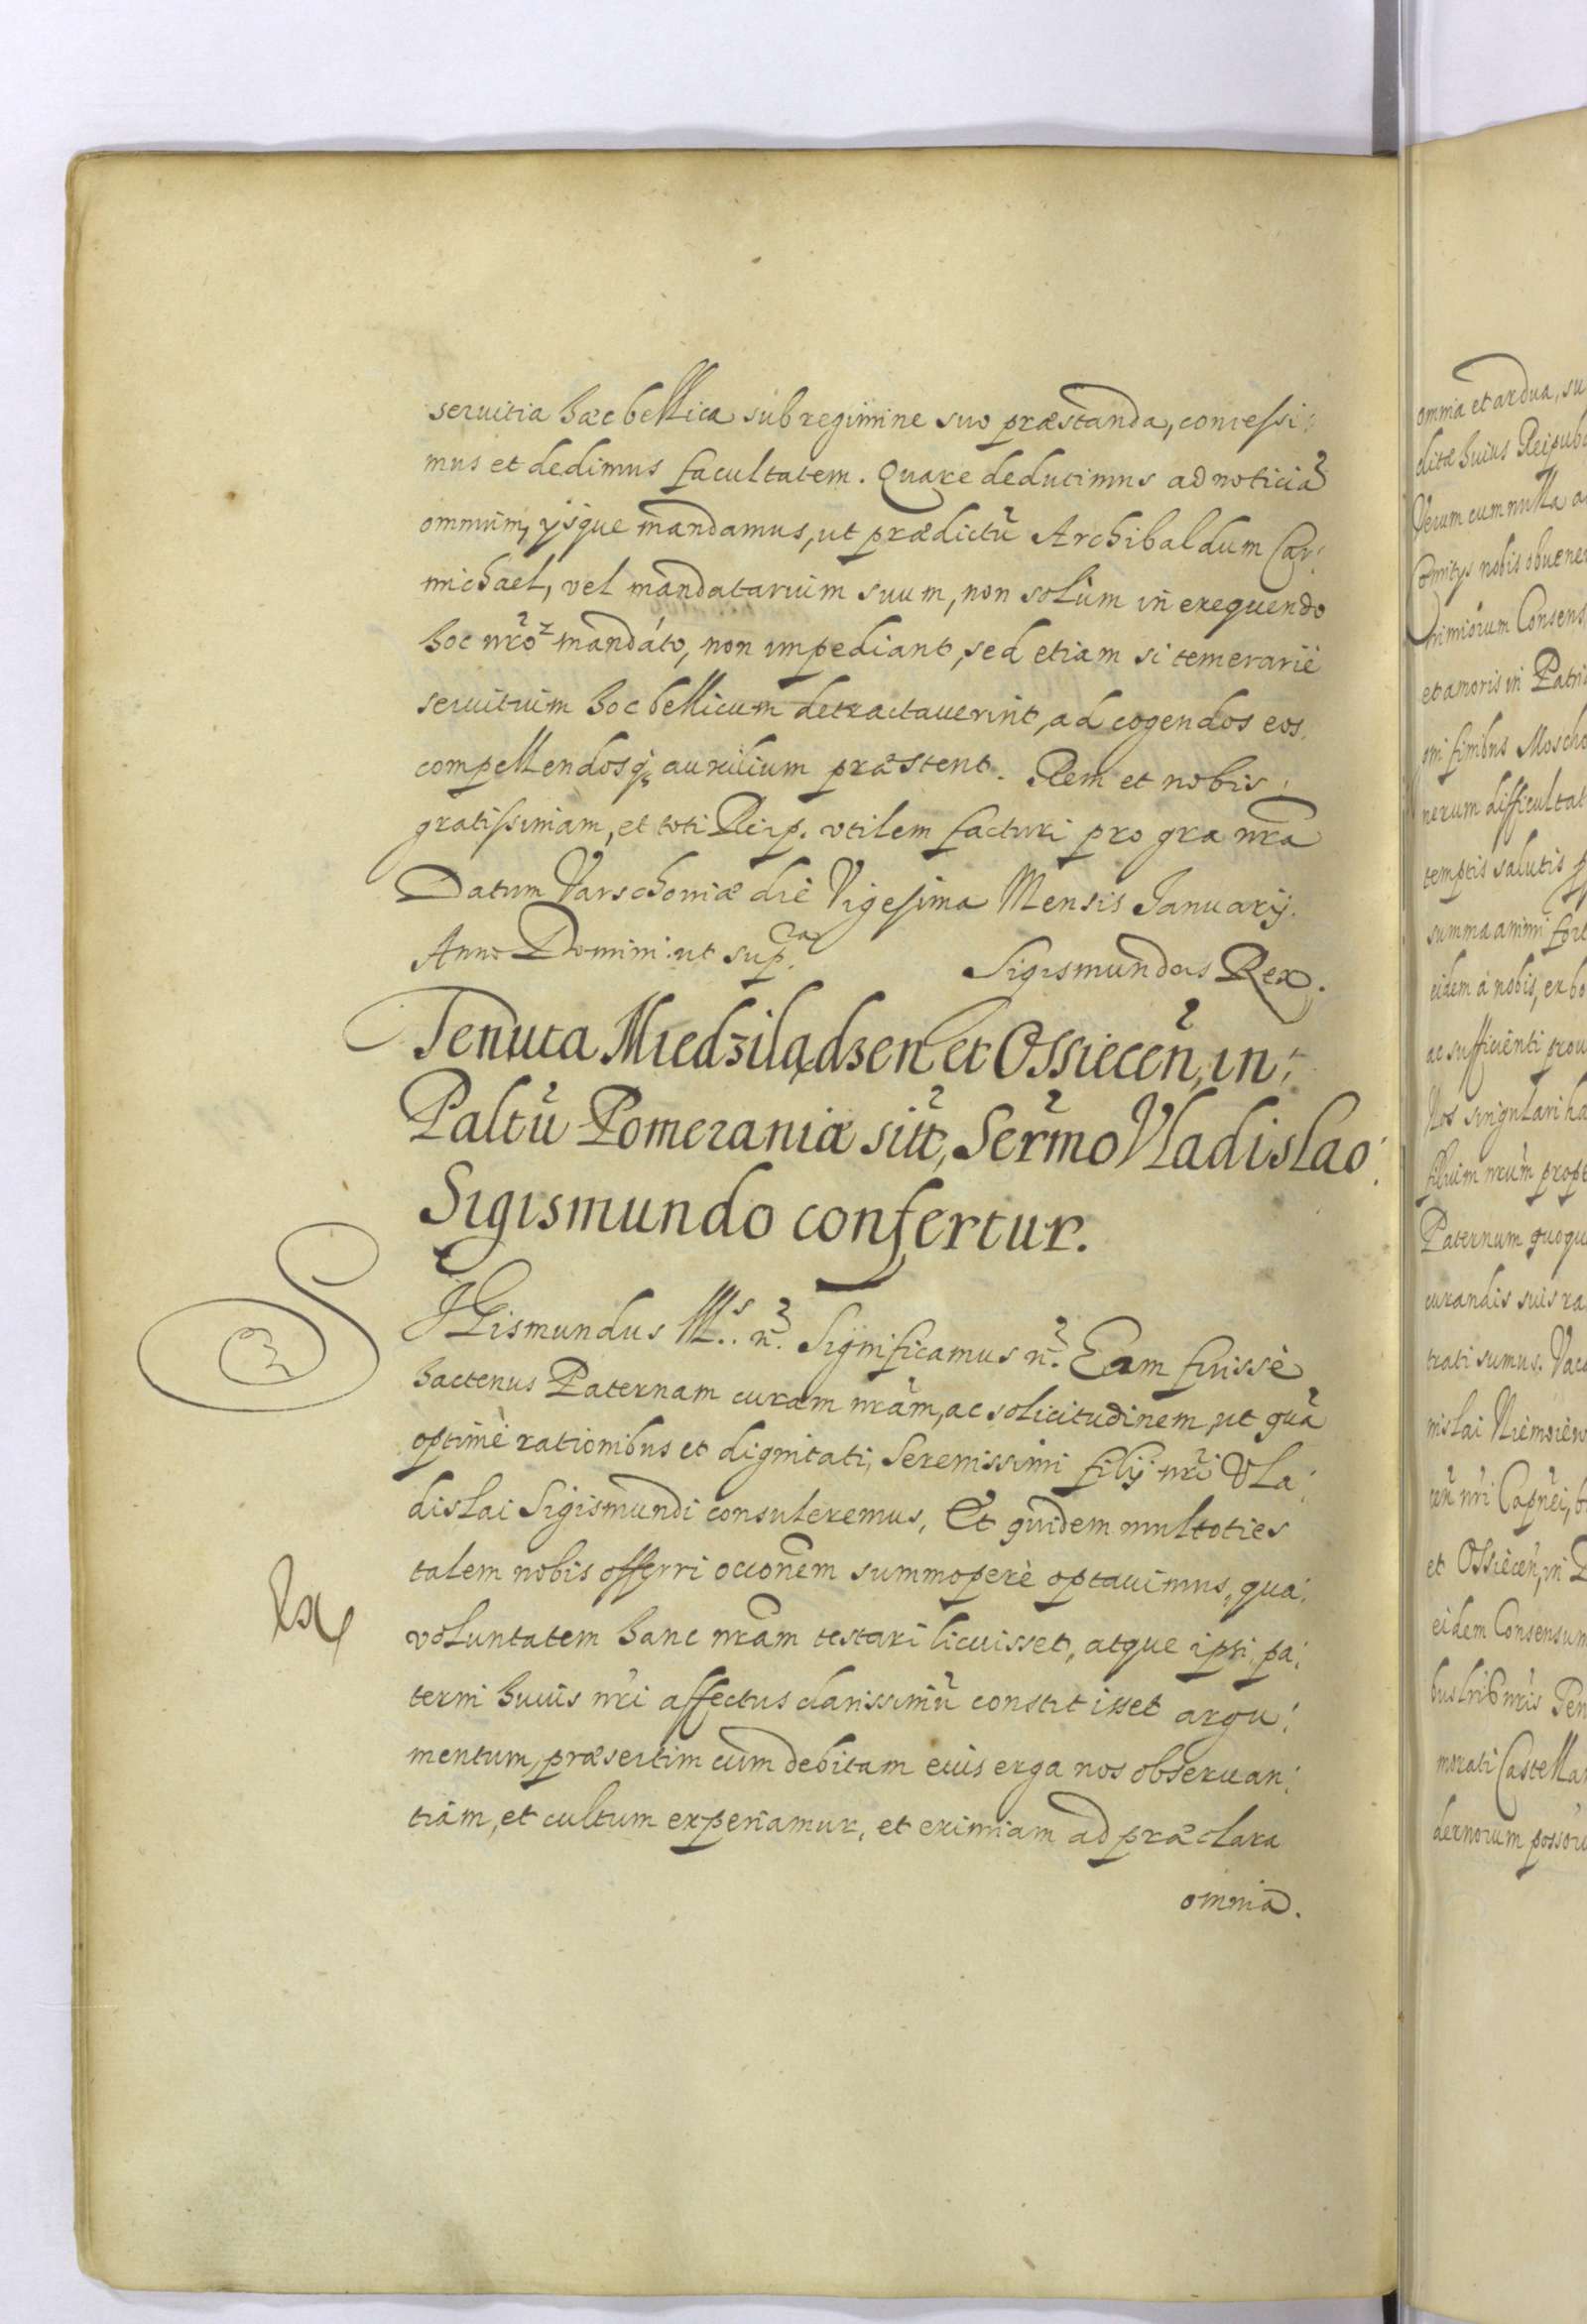 seruitia hæc bellica sub regimine suo præstanda, concessi:
mus et dedimus facultatem. Quare deducimus ad noticiã
omnium, ijsque mandamus, ut prædictũ Archibaldum Car:
michael, vel mandatarium suum, non solùm in exequendo
hoc nr̃o mandáto, non impediant, sed etiam si temerariè
seruitium hoc bellicum detractauerint, ad cogendos eos.
compellendosq̃ auxilium præstent. Rem et nobis
gratissimam, et toti Reip. vtilem facturi pro gra nr̃a
Datum Varschouiæ die Vigesima Mensis Januarij.
Anno Domini ut supra.
Sigismundus Rex.
Tenuta Miedziladzen et Ossiecen̄, in
Paltũ Pomeraniæ sit̃, Ser̃mo Vladislao
Sigismundo confertur.
SIGismundus III.s n̄. Significamus n̄. Eam fuissè
hactenus Paternam curam nr̃am, ac solicitudinem, ut quã
optimè rationibus et dignitati, Serenissimi filij nr̃i Vla:
dislai Sigismundi consuleremus, Et quidem multoties
talem nobis offerri occõnem summoperè optauimus, qua
voluntatem hanc nr̃am testari licuisset, atque ipsi pa:
terni huius nr̃i affectus clarissimũ constitisset argu:
mentum, præsertim cùm debitam eius erga nos obseruan:
tiam, et cultum experiamur, et eximiam ad præclara
omnia.
omnia et ardua, su
ditæ huius Reipub
Verum cum nulla a
Comitijs nobis obuene
Primiorum Consens
et amoris in Patri
ni finibus Moscho
nerum difficultat
temptis salutis
summa animi fort
eidem à nobis, ex bo
ac sufficienti prou
Nos singulari ha
filium nr̃um propt
Paternum quoqu
curandis suis ra
trati sumus. Vac
nislai Niemoien
cen̄ nr̃i Capnei, b
et Ossiecen̄, in P
eidem Consensum
bus lrib nr̃is Ten
morati Castellan
dernorum possor